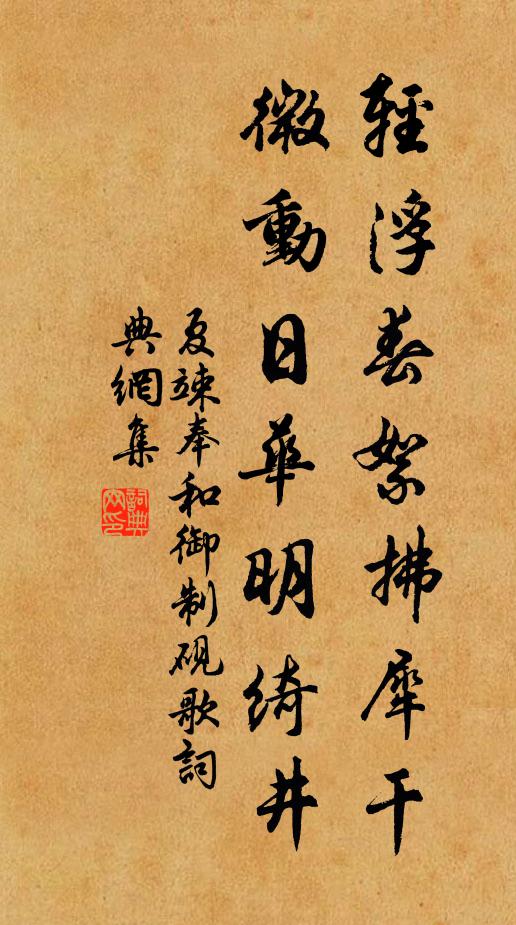 輕浮春絮拂犀干
微動日華明綺井
夏竦奉和御制硯歌詞
典網集
詞典網印